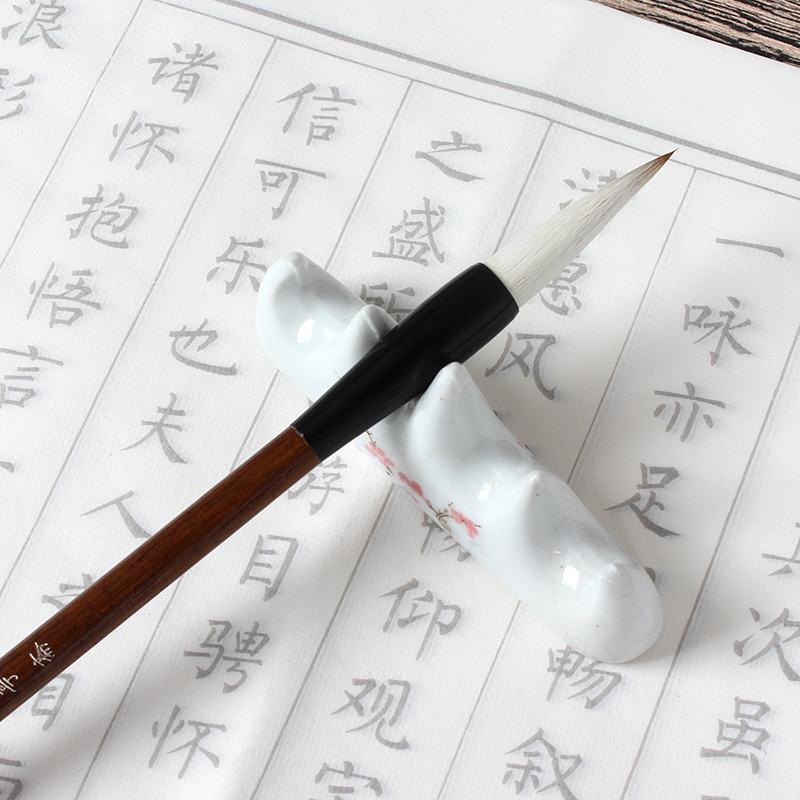 次虽
一咏亦足畅叙
清惠风畅仰观宇
之盛所游目骋怀
信可乐也夫人之
诸怀抱悟言
浪形